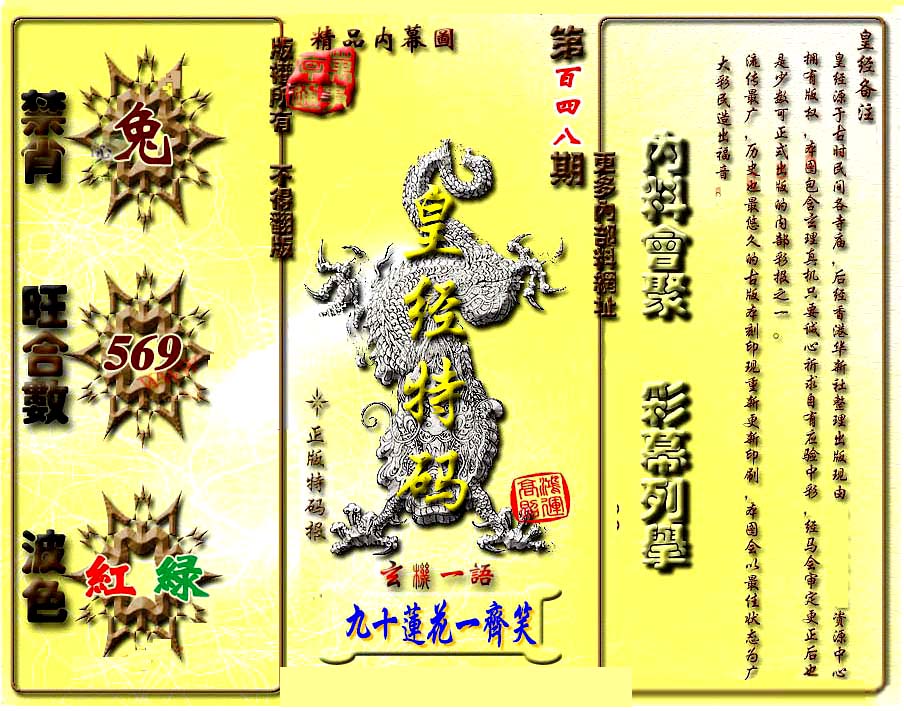 精品内幕圖
第百四八期
版權所有 不得翻版
更多內部料網址
禁肖
兔
旺合數
569
波色
紅 綠
皇经特码
正版特码报
鴻運
高照
玄機一語
九十蓮花一齊笑
内料會聚 彩幕列舉
皇经备注
皇经源于古时民间各寺庙,后经香港华新社整理出版现由 资源中心
拥有版权,本图包含玄理真机只要诚心祈求自有应验中彩,经马会审定更正后也
是少数可正式出版的内部彩报之一。
流传最广,历史也最悠久的古版本刻印现重新更新印刷,本图会以最佳状态为广
大彩民造出福音